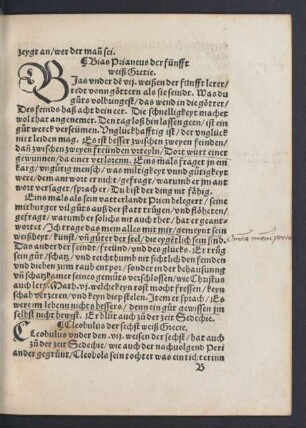 zeygt an/wer der man̄ sei.
¶Bias Prianeus der fünfft
weiß Grecie.
BIas vnder dē vij. weisen der fünfft lerer/
redt von̄ göttern als sie seindt. Was du
gůts volbringest/das wend in die götter/
Des feinds haß acht dein eer. Die schnelligkeyt machet
wol that angenemer. Den tag loß hin lassen geen/ ist ein
gůt werck verseimen. Vnglückhafftig ist/ der vnglück
nit leiden mag. Es ist besser zwischen zweyen feinden/
dañ zwischen zweyen freünden vrteyln/ Dort würt einer
gewunnen/da einer verloren. Eins mals fraget jn ein
karg/ vngütig mensch/ was miltigkeyt vnnd gütigkeyt
wer/ dem antwort er nicht/ gefragt/ warumb er jm ant
wort versaget/ sprach er/ Du bist der ding nit fähig.
Eins mals als sein vatterlandt Prien belegert/ seine
mitburger vil gůts auß der statt trůgen/ vnd flöheten/
gefragt/ warumb er solichs nit auch thet/ hat er geant-
wortet/ Ich trage das mein alles mit mir/ gemeynt sein
weißheyt/ kunst/ vn̄ gůter der seel/ die eygētlich sein sind.
Omnia mea mecum porto
Das ander der feindt/ freünd/ vnd des glücks. Er trůg
sein gůt/ schatz/ vnd reichthumb nit sichtlich den feinden
vnd dieben zum raub entpor/ sonder in der behausunng
vn̄ schatzkamer seines gemüts verschlossen/ wie Christus
auch lert/ Math. vj. welche keyn rost mocht fressen/ keyn
schab verzeren/ vnd keyn dieb stelen. Item er sprach/ Es
were im leben nichts bessers/ denn ein gůt gewissen jm
selbst nicht bewißt. Er blüt auch zů der zeit Sedechie.
¶Cleobulus der sechst weiß Grecie.
CLeobulus vnder den .vij. weisen der sechst/ hat auch
zů der zeit Sedechie/ wie auch der nachuolgend Peri
ander gegrünt/ Cleobola sein tochter was ein richterinn
B